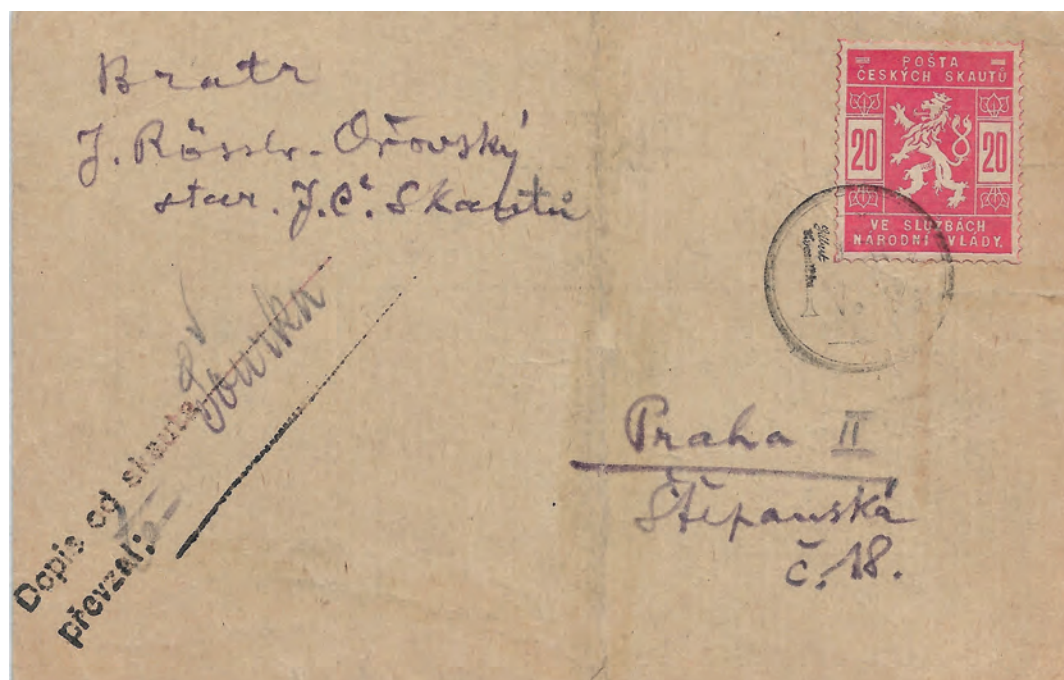 Bratr
J. Rössler-Ořovský
star. J. Č. Skautů
POŠTA
ČESKÝCH SKAUTŮ
20 20
VE SLUŽBÁCH
NÁRODNÍ VLÁDY.
Praha II
Štěpanská
č. 18.
Dopis od skauta
převzal: